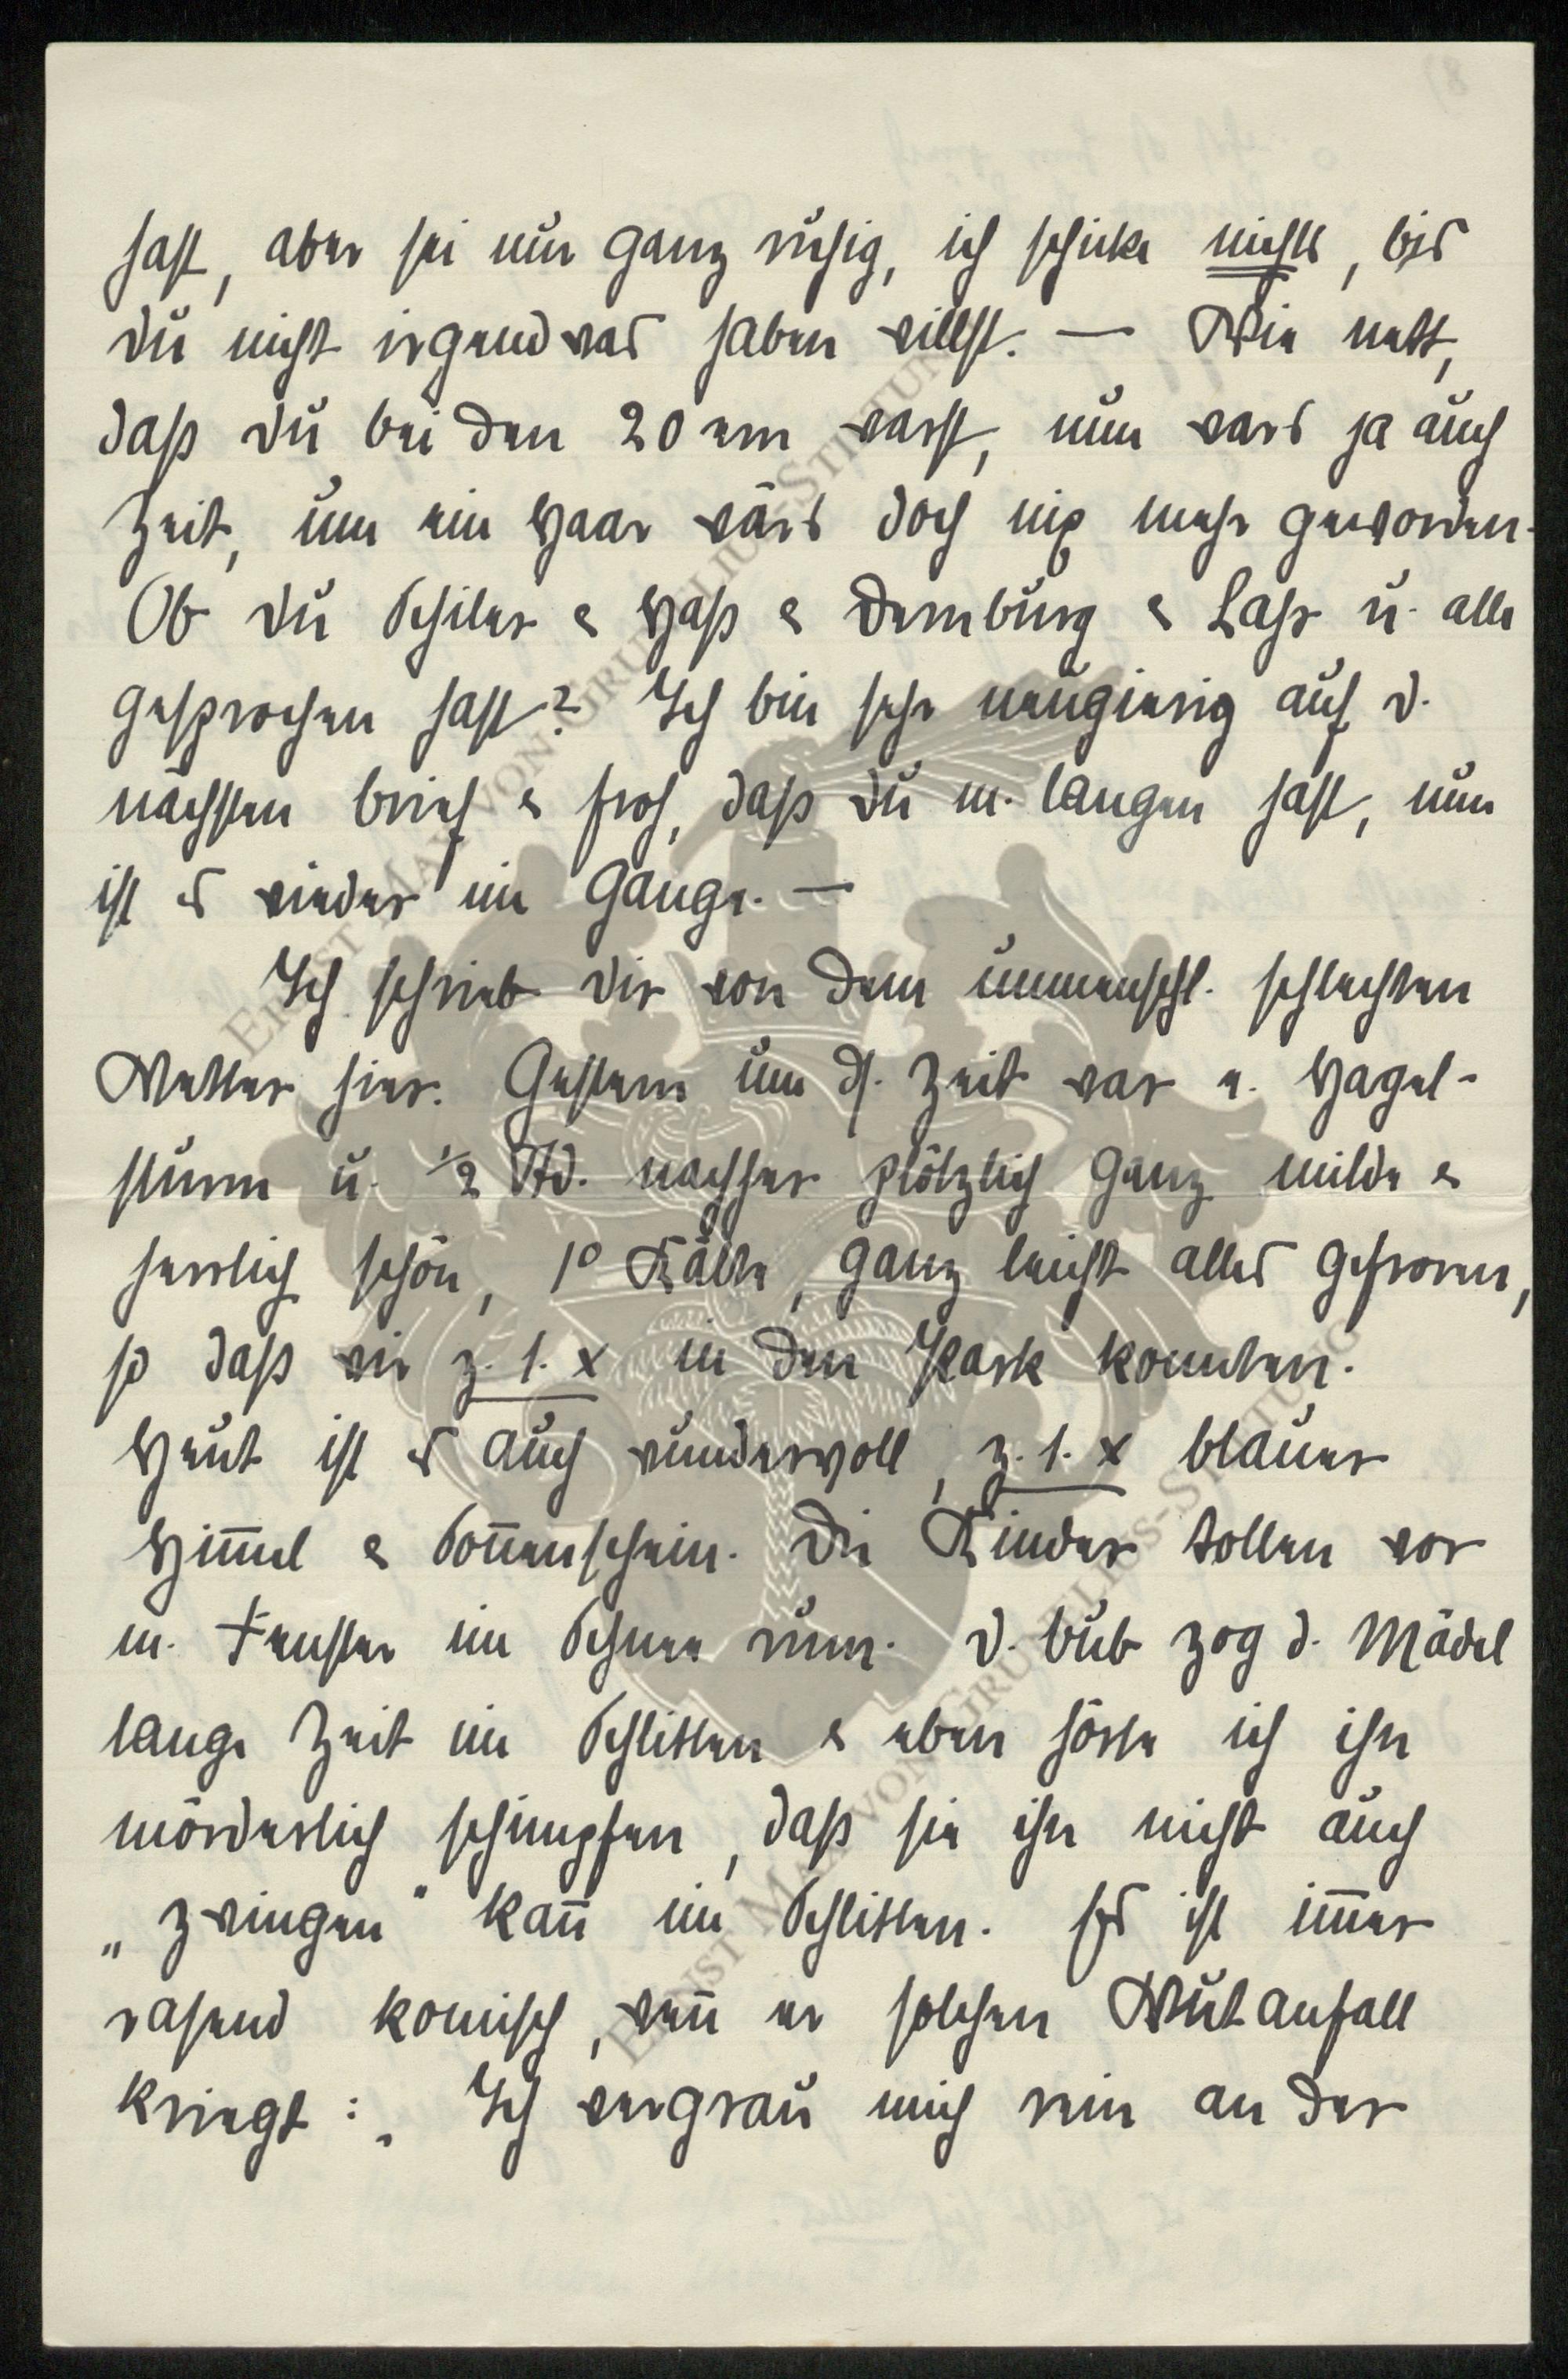 hast, aber sei nur ganz ruhig, ich schicke nichts, bis
du nicht irgendwas haben willst. — Wie nett,
daß du bei den 20ern warst, nun wars ja auch
Zeit, um ein Haar wärs doch nix mehr geworden.
Ob du Schiler & Haß & Dernburg & Lahr u. alle
gesprochen hast? Ich bin sehr neugierig auf d.
nächsten Brief & froh, daß du m. langen hast, nun
ist es wieder im Gange. —
Ich schrieb dir von dem unmenschl. schlechten
Wetter hier. Gestern um ds. Zeit war e. Hagel-
sturm u. 1/2 Std. nachher plötzlich ganz milde &
herrlich schön, 1° Kälte, ganz leicht alles gefroren,
so daß wir z. 1. x in den Park konnten.
Heut ist es auch wundervoll, z. 1. x blauer
Him̅el & Son̅enschein. Die Kinder tollen vor
m. Fenster im Schnee rum. D. Bub zog d. Mädel
lange Zeit im Schlitten & eben hörte ich ihn
mörderlich schimpfen, daß sie ihn nicht auch
„zwingen" kan̅ im Schlitten. Es ist im̅er
rasend komisch, wen̅ er solchen Wutanfall
kriegt: „Ich vergrau mich rein an der
ERNST MAX VON GRUNELIUS-STIFTUNG
ERNST MAX VON GRUNELIUS-STIFTUNG